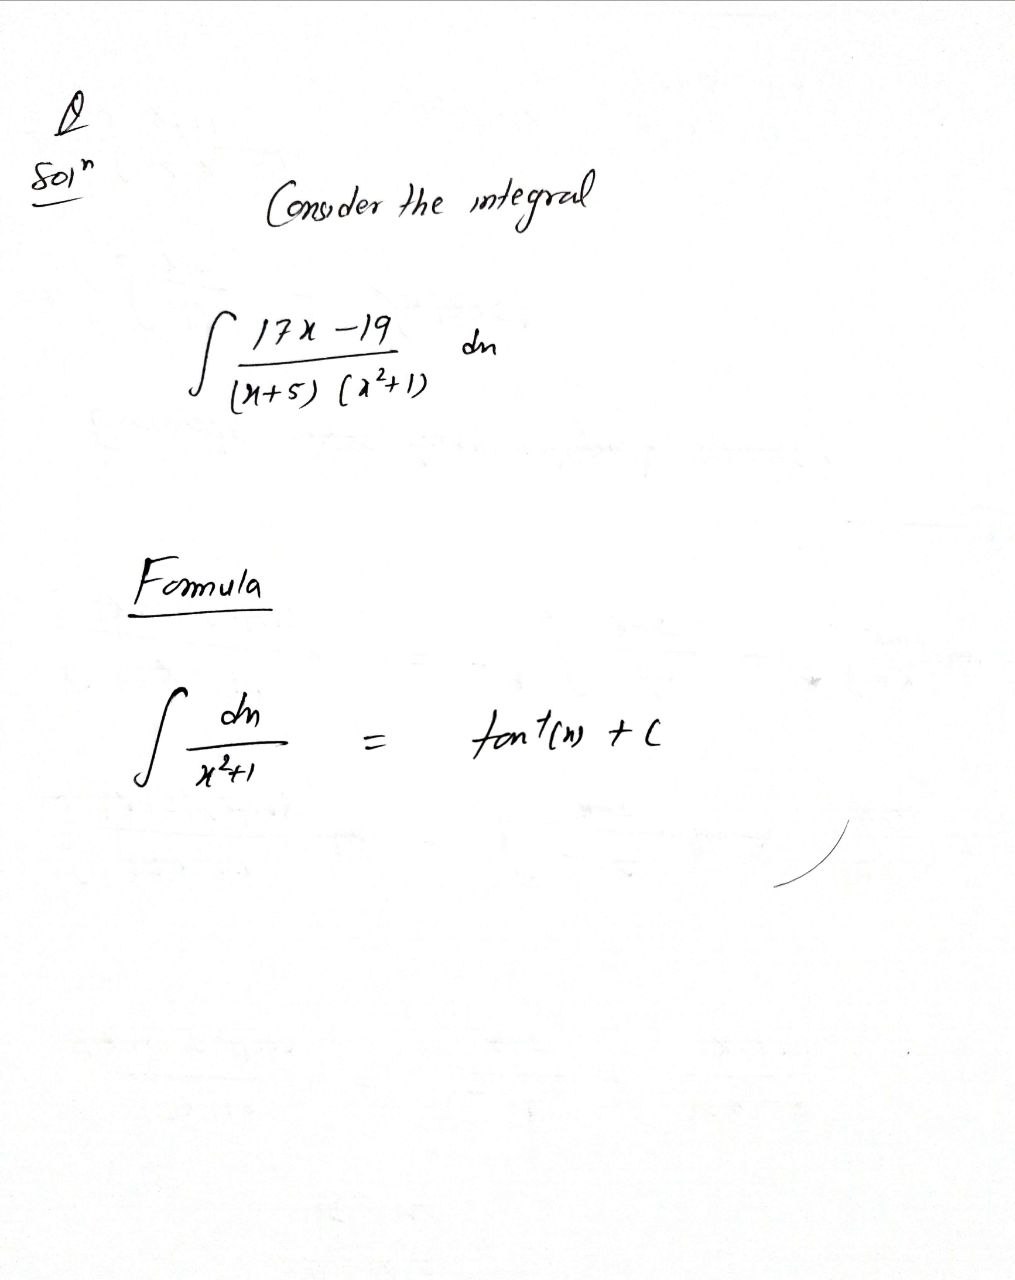 Q
Solⁿ
Consider the integral
∫ (17x - 19) / ((x+5) (x²+1)) dx
Formula
∫ dx / (x²+1) = tan⁻¹(x) + C